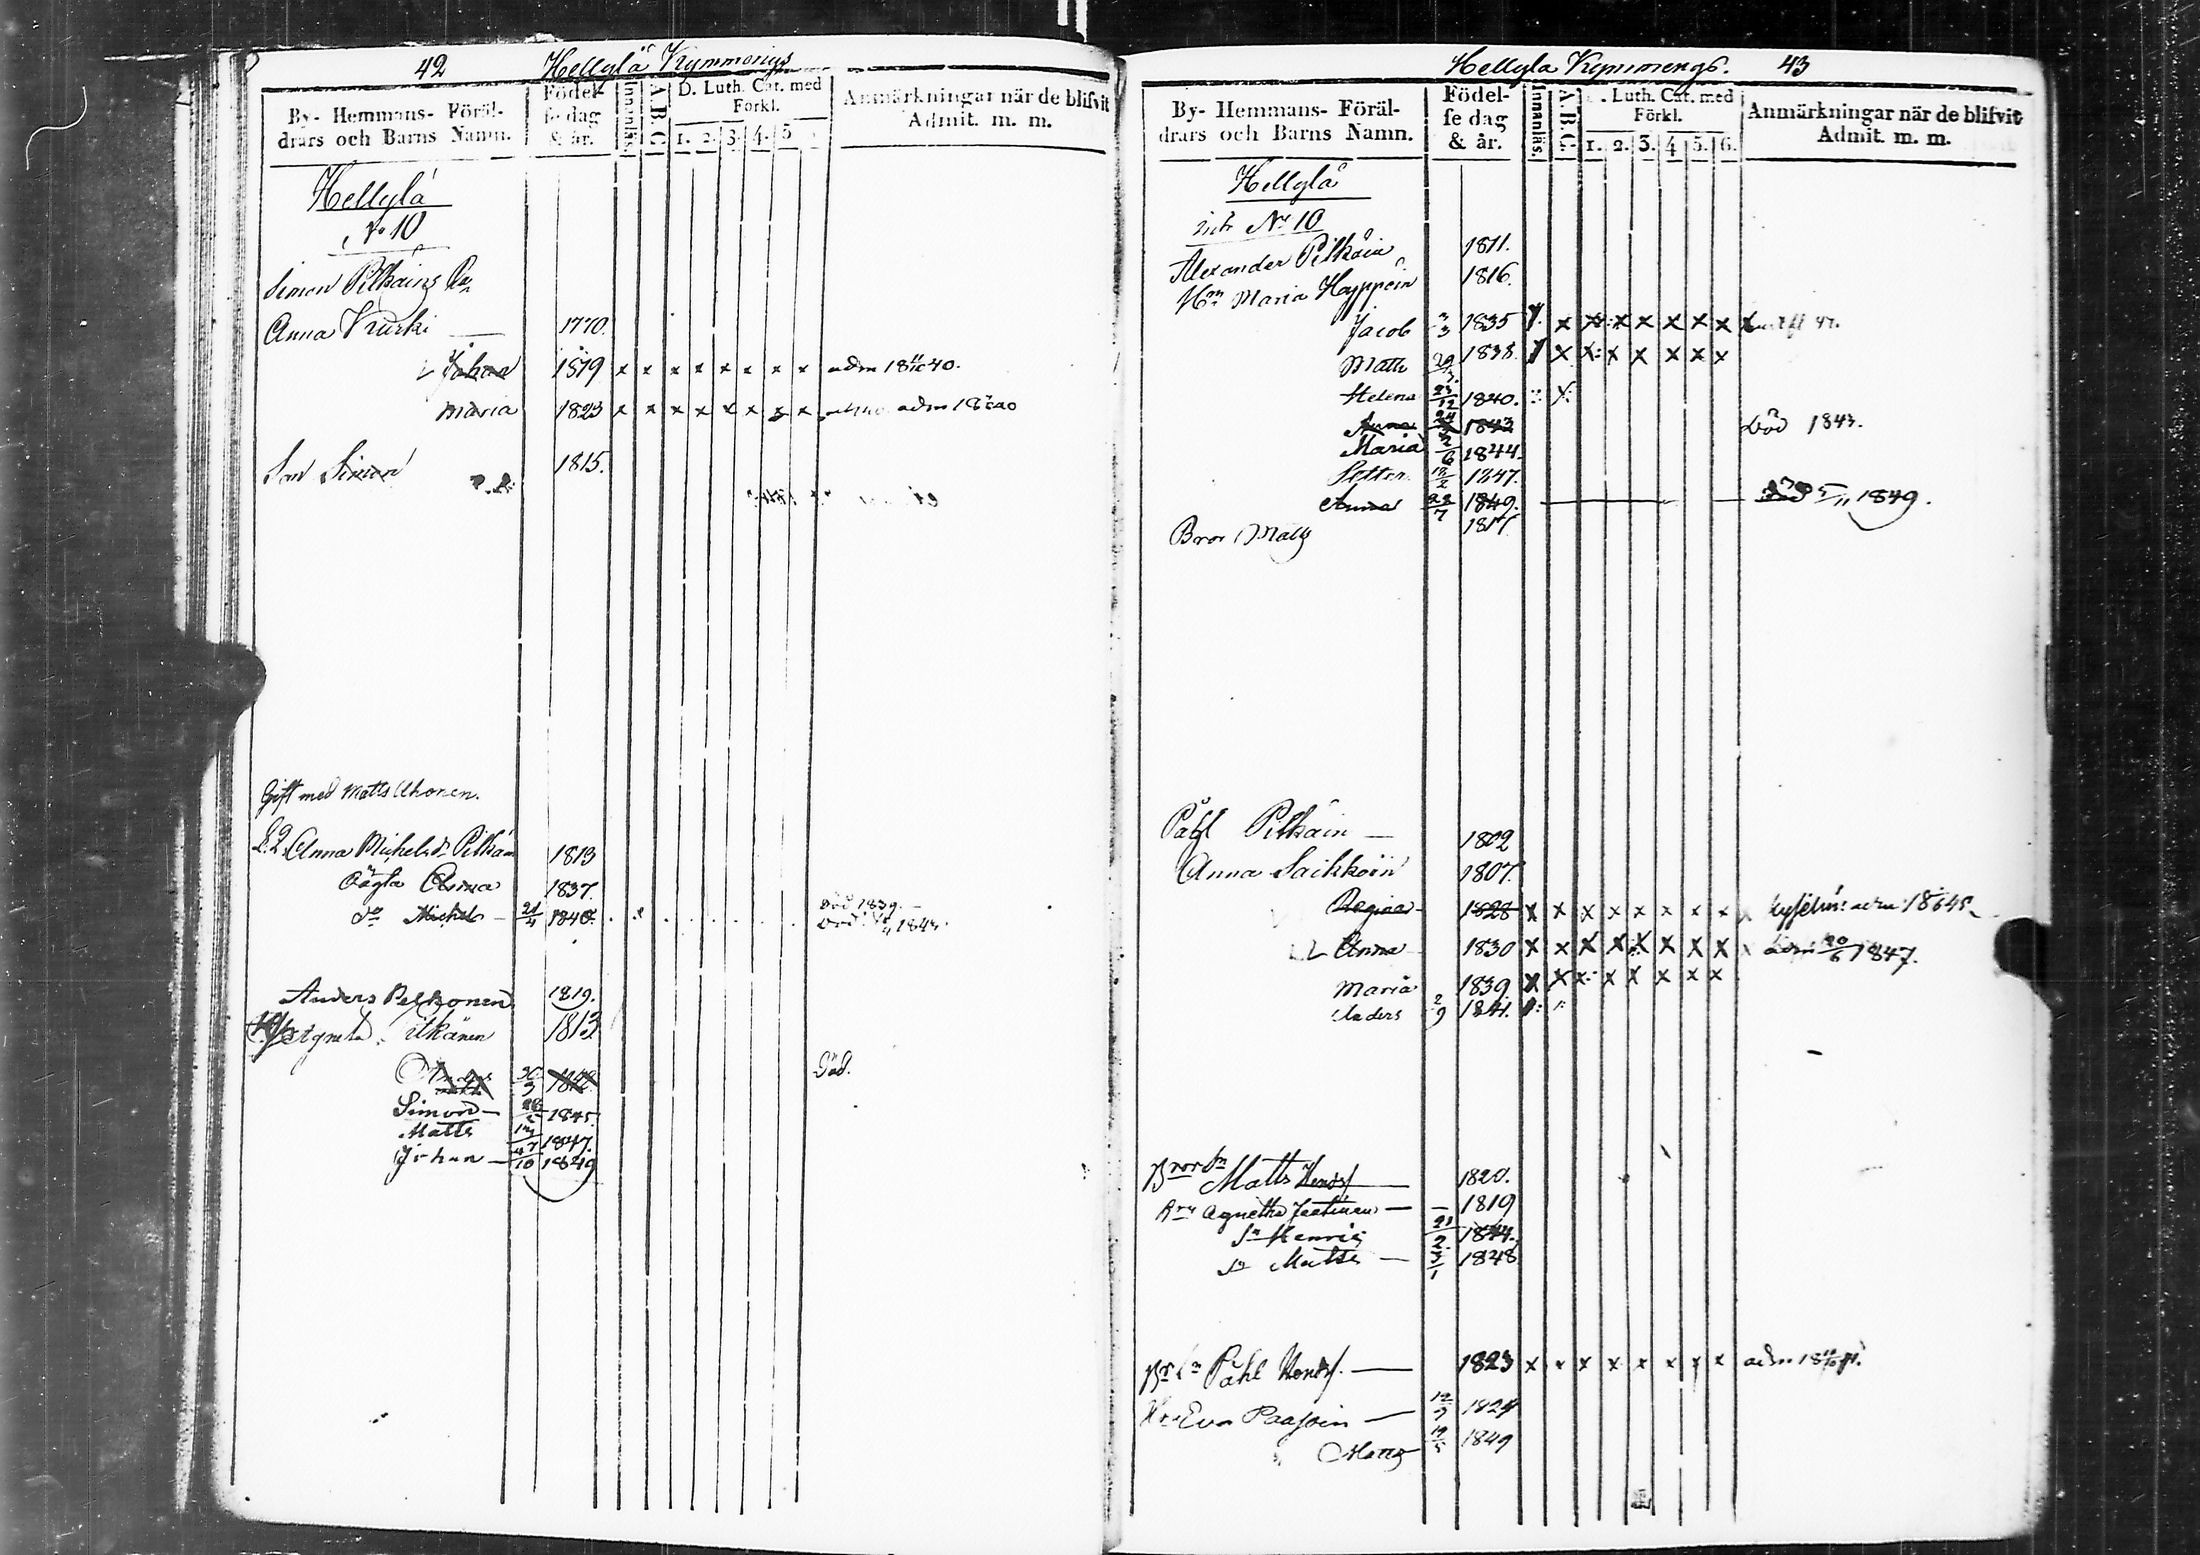 42 Hellylä Kymmenigs
By- Hemmans- Föräl-
drars och Barns Namn.
Födel-
se dag
& år.
Innanläs.
A.B.C.
D. Luth. Cat. med
Förkl.
1. 2. 3. 4. 5
Anmärkningar när de blifvit
Admit. m. m.
Hellylä
No 10
Simon Pitkäins
Anna Kurki 1770.
Johan 1819 x x x x x x x x adm 18 40.
Maria 1823 x x x x x x x x adm
Son Simon 1815.
Gift med Matts Ahonen.
Anna Michelsdr Pitkäin 1813
Oägta Anna 1837. Död 1839.
Do Michel 21/4 1840. Död 1843.
Anders Pelkonen 1819.
Agneta itkänen 1813
30/9 Död.
Simon 1845.
Matts 1847.
Johan 10 1849
Hellylä Kymmengs. 43
By- Hemmans- Föräl-
drars och Barns Namn.
Födel-
se dag
& år.
Innanläs.
A.B.C.
Luth. Cat. med
Förkl.
1. 2. 3. 4 5. 6.
Anmärkningar när de blifvit
Admit. m. m.
Hellylä
No 10
Alexander Pitkäin 1811.
Hu Maria Hyppöin 1816.
Jacob 3/3 1835 x x x x x x x
Matts 1838. x x x x x x
Helena 23/12 1840.
Anna 1843 Död 1843.
Maria 2/6 1844.
Petter 12/2 1847.
Anna 22/7 1849. död 5/11 1849.
Bror Matts 1817
Påhl Pitkäin 1802
Anna Saikkoin 1807.
Regina 1828 x x x x x x x x
Anna 1830 x x x x x x x x 20/6 1847.
Maria 1839 x x x x x x x x
Anders 2/9 1841.
Brorsn Matts Hendsf 1820.
Agnetha 1819
Sn Henric 21/2 1844.
Sn Matts 3/1 1848
Brsn Påhl Hendsf. 1823 x x x x x x x x adm
Hu Eva Paasoin 12/9 1824
Matts 19/5 1849